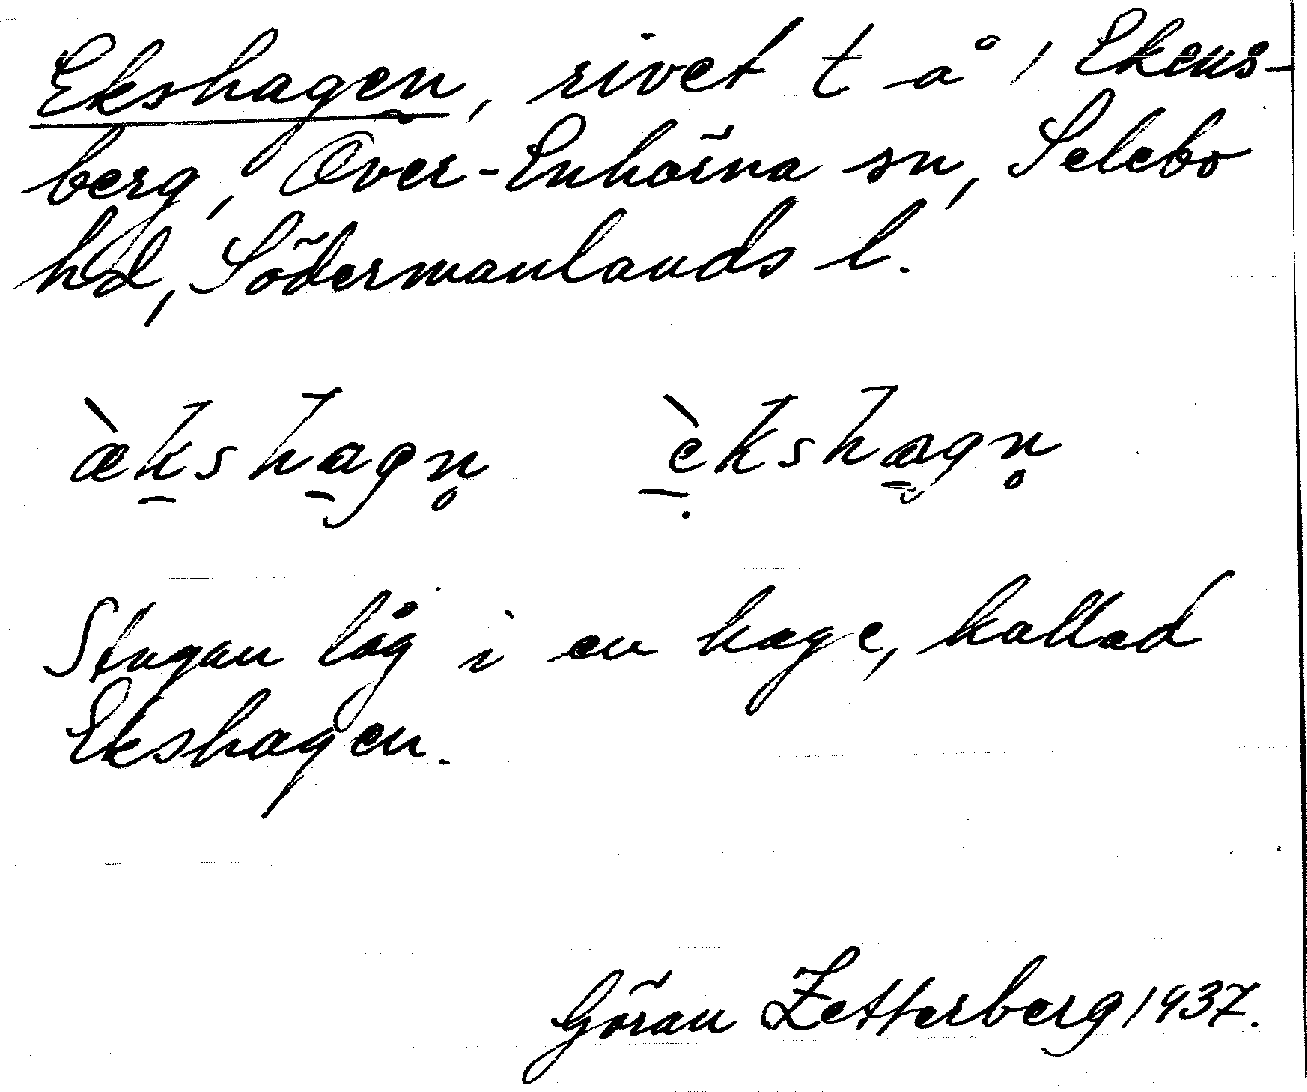 Ekshagen, rivet t å 1 Ekens-
berg, Över-Enhörna sn, Selebo
hd, Södermanlands l.
æ̀kshagn̥ èkshagn̥
Stugan låg i en hage, kallad
Ekshagen.
Göran Zetterberg 1937.